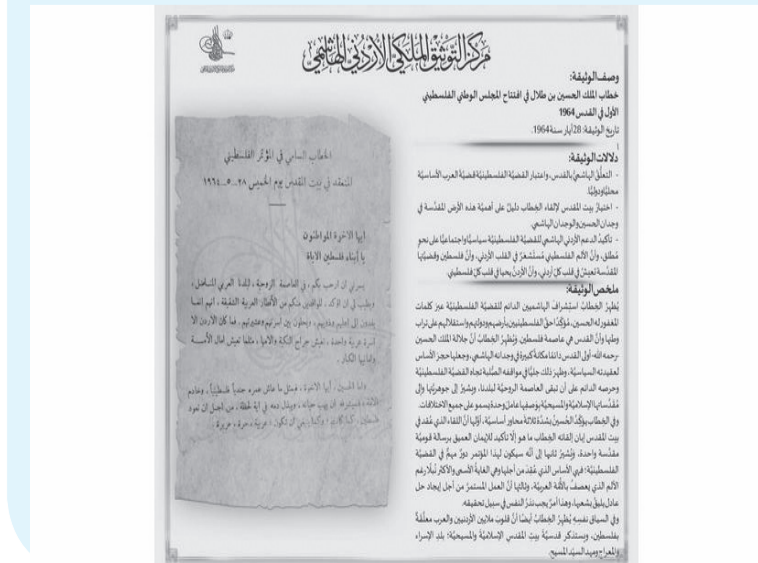 مركز التوثيق الملكي الأردني الهاشمي
وصف الوثيقة:
خطاب الملك الحسين بن طلال في افتتاح المجلس الوطني الفلسطيني
الأول في القدس 1964
تاريخ الوثيقة: 28أيار سنة 1964.
دلالات الوثيقة:
- التعلُّق الهاشميّ بالقدس، واعتبار القضيَّة الفلسطينيَّة قضيَّة العرب الأساسيَّة
محليًّا ودوليًّا.
- اختيارُ بيت المقدس لإلقاء الخِطاب دليلٌ على أهميَّة هذه الأرض المقدَّسة في
وجدان الحسين والوجدان الهاشمي.
- تأكيدُ الدعم الأردني الهاشمي للقضيَّة الفلسطينيَّة سياسيًّا واجتماعيًّا على نحوٍ
مُطلق، وأنَّ الألم الفلسطيني مُستَشعَرٌ في القلب الأردني، وأنَّ فلسطين وقضيَّتها
المقدَّسة تعيشُ في قلب كلّ أردني، وأنَّ الأردنَّ يحيا في قلب كلّ فلسطيني.
ملخص الوثيقة:
يُظهِرُ الخِطابُ استِشرافَ الهاشميين الدائم للقضيَّة الفلسطينيَّة عبرَ كلمات
المغفور له الحسين، مُؤكِّدًا حقَّ الفلسطينيين بأرضهم ودولتهم واستقلالهم على تراب
وطنها وأنَّ القدس هي عاصمة فلسطين، ويُظهِرُ الخِطابُ أنَّ جلالة الملك الحسين
-رحمه الله- أولى القدس دائمًا مكانةً كبيرة في وجدانه الهاشمي، وجعلها حجرَ الأساس
لعقيدته السياسيَّة، وظهرَ ذلك جليًّا في مواقفه الصُّلبة تجاه القضيَّة الفلسطينيَّة
وحرصه الدائم على أن تبقى العاصمة الروحيَّة لبلدنا، ويشيرُ إلى جوهريَّتها وإلى
مُقدَّساتها الإسلاميَّة والمسيحيَّة بوَصفِها عاملَ وحدةٍ يسمو على جميع الاختلافات.
وفي الخِطاب يؤكِّدُ الحُسينُ بشدَّة ثلاثةَ محاور أساسيَّة، أوَّلها أنَّ اللقاء الذي عُقد في
بيت المقدس إبان إلقائه الخِطاب ما هو إلَّا تأكيد للإيمان العميق برسالة قوميَّة
مقدَّسة واحدة، وتُشيرُ ثانيها إلى أنَّه سيكون لهذا المؤتمر دورٌ مهمٌّ في القضيَّة
الفلسطينيَّة؛ فهي الأساس الذي عُقِدَ من أجلها وهي الغايةُ الأسمى والأكثر نُبلًا رغم
الألم الذي يعصفُ بالأمَّة العربيَّة، وثالثها أنَّ العملَ المستمرَّ من أجل إيجاد حل
عادل يليقُ بشعبها، وهذا أمرٌ يجب نذرُ النفس في سبيل تحقيقه.
وفي السياق نفسِه يُظهِرُ الخِطابُ أيضًا أنَّ قلوبَ ملايين الأردنيين والعرب معلَّقةٌ
بفلسطين، ويستذكر قدسيَّةَ بيت المقدس الإسلاميَّة والمسيحيَّة؛ بلدِ الإسراء
والمعراج ومهد السيّد المسيح.
الخطاب السامي في المؤتمر الفلسطيني
المنعقد في بيت المقدس يوم الخميس ٢٨-٥-١٩٦٤
ايها الاخوة المواطنون
يا أبناء فلسطين الاباة
يسرني ان ارحب بكم، في العاصمة الروحية، لبلدنا العربي المناضل،
ويطيب لي ان اؤكد، للوافدين منكم من الأقطار العربية الشقيقة، انهم انما
يفدون إلى اهلهم وذويهم، ويحلون بين اسرتهم وعشيرتهم. فما كان الاردن الا
اسرة عربية واحدة، تعيش جراح النكبة وآلامها، مثلما تعيش آمال الأمة
وأمانيها الكبار.